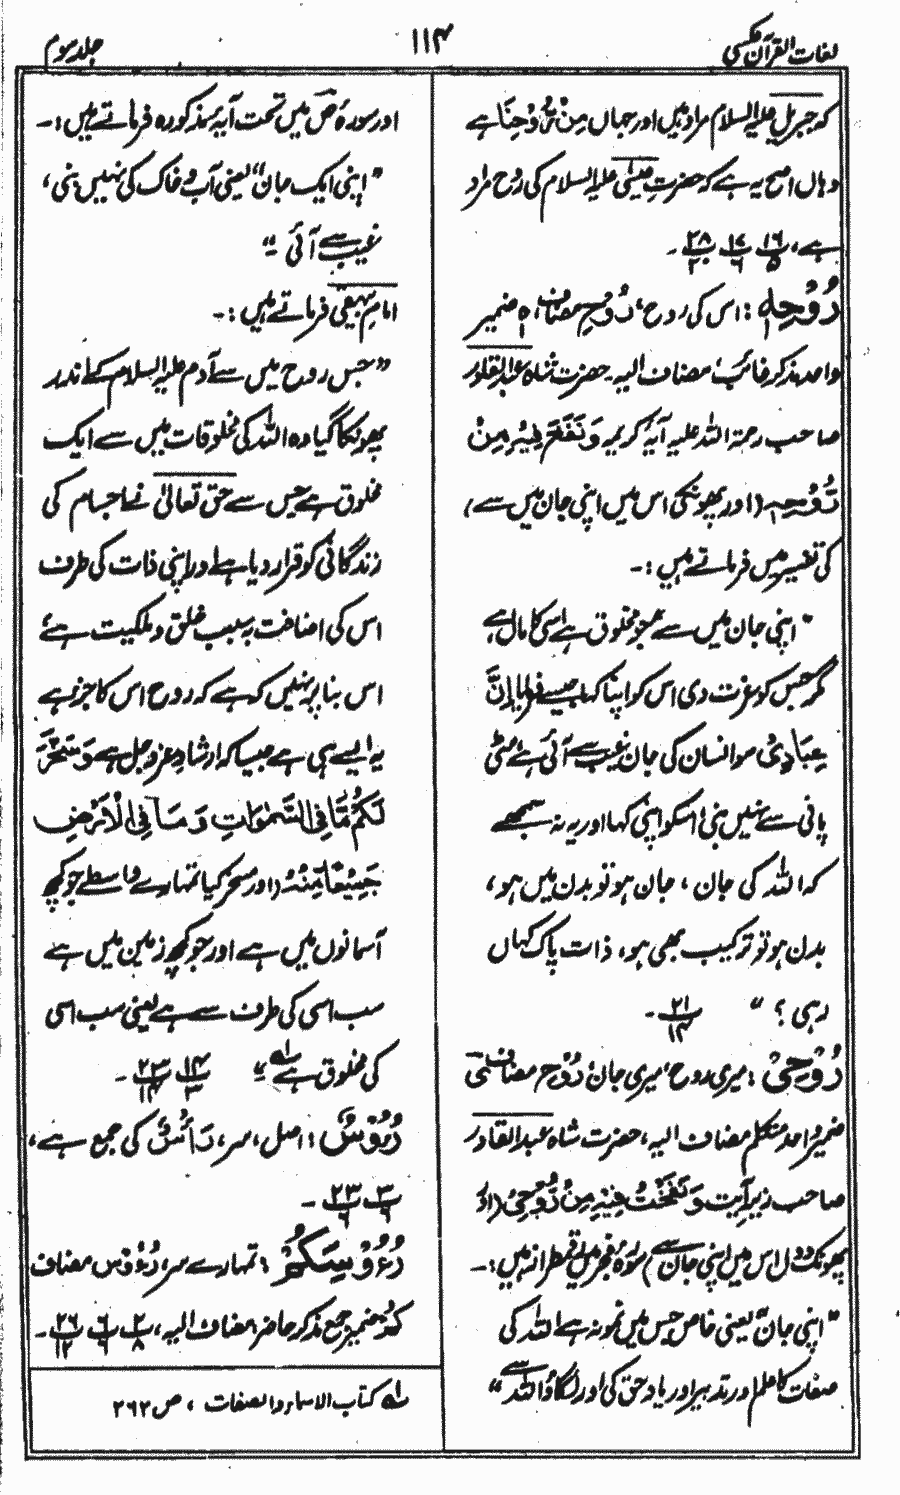 لغات القرآن عکسی
۱۱۴
جلد سوم
کہ جبریل علیہ السلام مراد ہیں اور جہاں مِنْ رُّوْحِنَا ہے
وہاں اصح یہ ہے کہ حضرت عیسٰی علیہ السلام کی رُوح مراد
ہے، ۱۶/۵ ۱۷/۶ ۲۸/۲۰ ـ
رُوْحِهٖ : اس کی روح، رُوْحِ مضاف، ہٖ ضمیر
واحد مذکر غائب، مضاف الیہ ـ حضرت شاہ عبدالقادر
صاحب رحمۃ اللہ علیہ آیۂ کریمہ وَنَفَخَ فِيْهِ مِنْ
رُّوْحِهٖ (اور پھونکی اس میں اپنی جان میں سے)
کی تفسیر میں فرماتے ہیں :ـ
" اپنی جان میں سے ہمجو مخلوق ہے اسی کا مال ہے
مگر جس کو عزت دی اس کو اپنا کہا جیسے فرمایا اِنَّ
عِبَادِیْ سو انسان کی جان غیب سے آئی ہے مٹی
پانی سے نہیں بنی، اسکو اپنی کہا اور یہ نہ سمجھے
کہ اللہ کی جان ، جان ہو تو بدن میں ہو ،
بدن ہو تو ترکیب بھی ہو، ذات پاک کہاں
رہی ؟ " ۲۱/۱۴ ـ
رُوْحِیْ : میری روح، میری جان، رُوْحِ مضاف ی
ضمیر واحد متکلم مضاف الیہ، حضرت شاہ عبدالقادر
صاحب زیر آیت وَنَفَخْتُ فِيْهِ مِنْ رُّوْحِیْ (اور
پھونک دوں اس میں اپنی جان سے) سورۂ حجر میں رقمطراز ہیں :ـ
" اپنی جان، یعنی خاص جس میں نمونہ ہے اللہ کی
صفات کا علم اور تدبیر اور یاد حق کی اور لگاؤ اللہ سے "
اور سورۂ صٓ میں تحت آیۂ مذکورہ فرماتے ہیں :ـ
" اپنی ایک جان، یعنی آب و خاک کی نہیں بنی ،
غیب سے آئی "ـ
امام بیہقی فرماتے ہیں :ـ
" جس روح میں سے آدم علیہ السلام کے اندر
پھونکا گیا وہ اللہ کی مخلوقات میں سے ایک
مخلوق ہے جس سے حق تعالیٰ نے اجسام کی
زندگانی کو قرار دیا ہے اور اپنی ذات کی طرف
اس کی اضافت بہ سبب خلق و ملکیت ہے
اس بنا پر نہیں کہ ہے کہ روح اس کا جز ہے
یہ ایسے ہی ہے جیسا کہ ارشاد عزوجل ہے وَسَخَّرَ
لَكُمْ مَّا فِی السَّمٰوٰتِ وَمَا فِی الْاَرْضِ
جَمِيْعًا مِّنْهُ (اور مسخر کیا تمہارے واسطے جو کچھ
آسمانوں میں ہے اور جو کچھ زمین میں ہے
سب اسی کی طرف سے ہے یعنی سب اسی
کی مخلوق ہے "ـ لہ ۱۴/۳ ۲۳/۱۴ ـ
رُءُوْسٌ : اصل، سر، رَأْسٌ کی جمع ہے ،
۳/۶ ۲۳/۶ ـ
رُءُوْسِكُمْ : تمہارے سر، رُءُوْس مضاف
کُمْ ضمیر جمع مذکر حاضر مضاف الیہ، ۲/۸ ۶/۶ ۲۶/۱۲ ـ
لہ کتاب الاسماء والصفات ، ص ۲۶۲